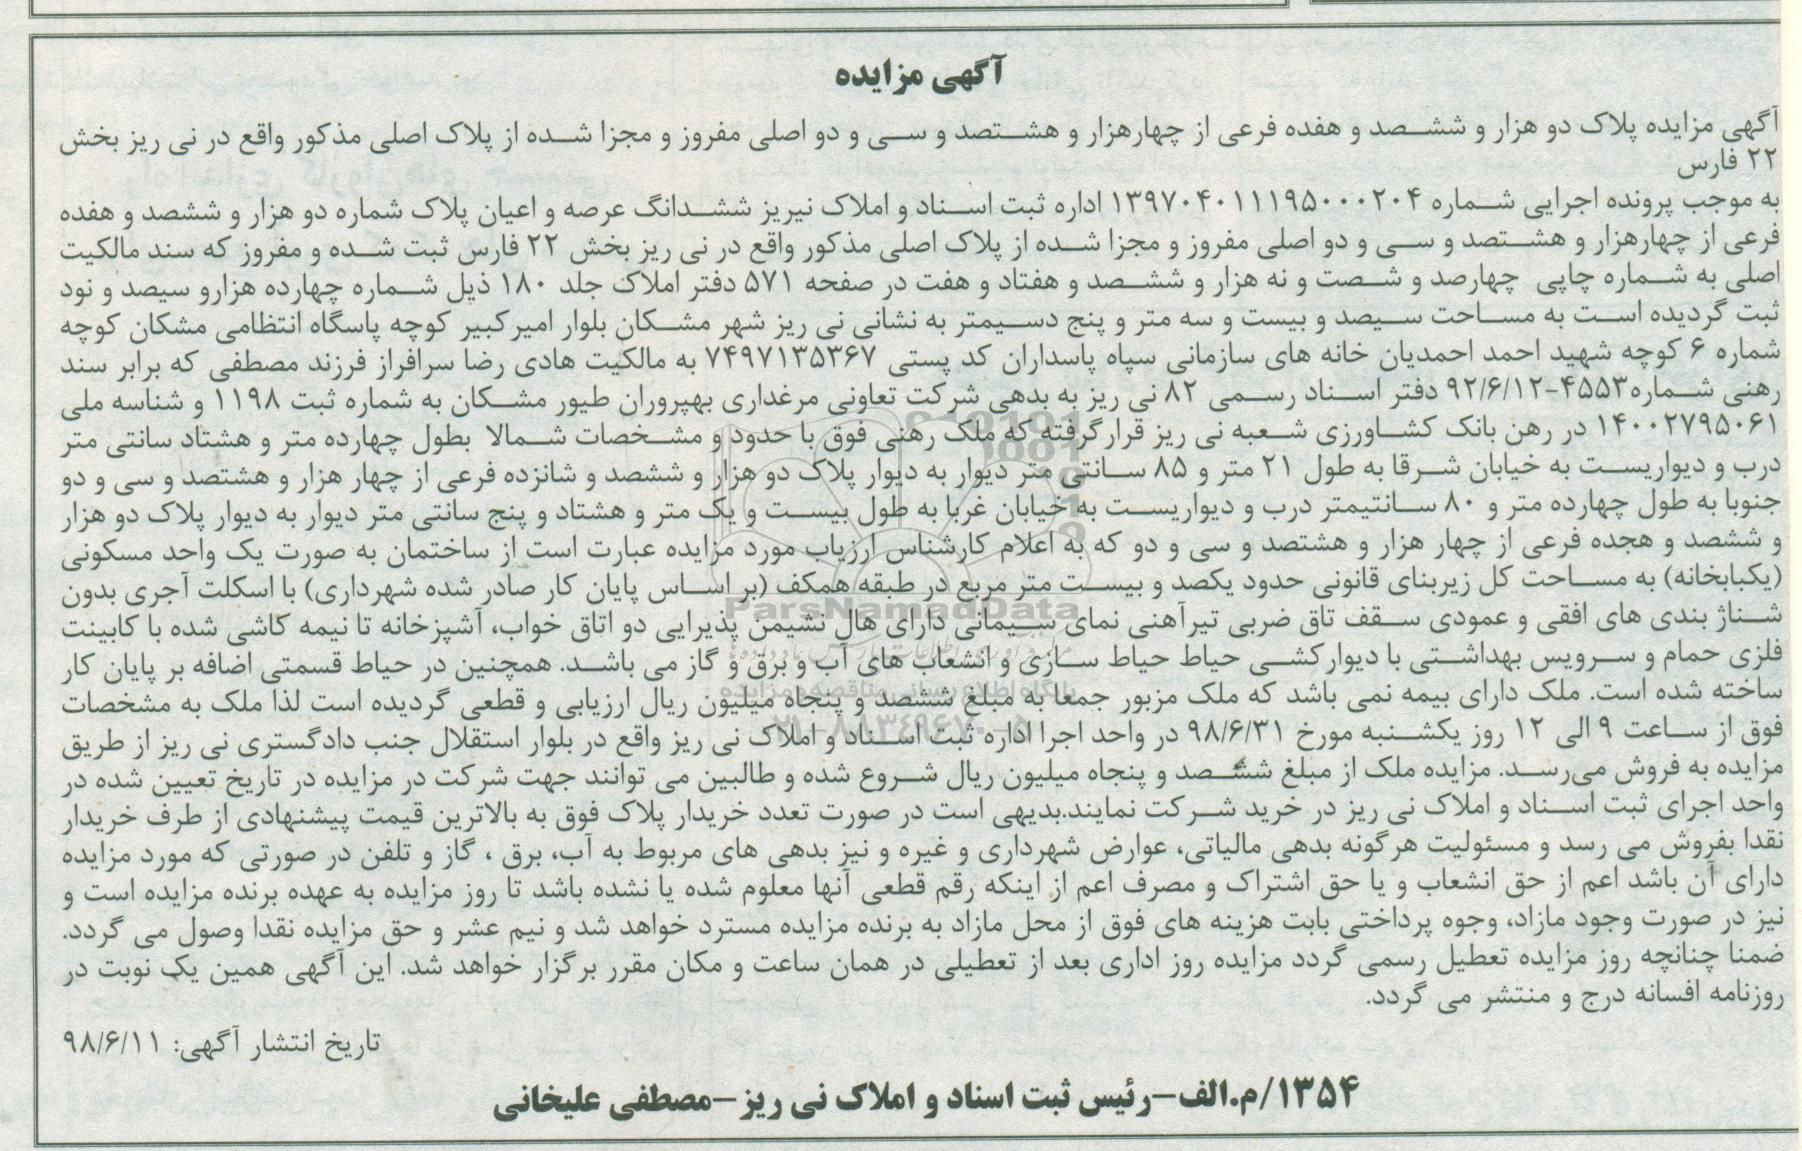 آگهی مزایده
آگهی مزایده پلاک دو هزار و ششصد و هفده فرعی از چهارهزار و هشتصد و سی و دو اصلی مفروز و مجزا شده از پلاک اصلی مذکور واقع در نی ریز بخش
۲۲ فارس
به موجب پرونده اجرایی شماره ۱۳۹۷۰۴۰۱۱۱۹۵۰۰۰۲۰۴ اداره ثبت اسناد و املاک نیریز ششدانگ عرصه و اعیان پلاک شماره دو هزار و ششصد و هفده
فرعی از چهارهزار و هشتصد و سی و دو اصلی مفروز و مجزا شده از پلاک اصلی مذکور واقع در نی ریز بخش ۲۲ فارس ثبت شده و مفروز که سند مالکیت
اصلی به شماره چاپی چهارصد و شصت و نه هزار و ششصد و هفتاد و هفت در صفحه ۵۷۱ دفتر املاک جلد ۱۸۰ ذیل شماره چهارده هزارو سیصد و نود
ثبت گردیده است به مساحت سیصد و بیست و سه متر و پنج دسیمتر به نشانی نی ریز شهر مشکان بلوار امیرکبیر کوچه پاسگاه انتظامی مشکان کوچه
شماره ۶ کوچه شهید احمد احمدیان خانه های سازمانی سپاه پاسداران کد پستی ۷۴۹۷۱۳۵۳۶۷ به مالکیت هادی رضا سرافراز فرزند مصطفی که برابر سند
رهنی شماره۴۵۵۳-۹۲/۶/۱۲ دفتر اسناد رسمی ۸۲ نی ریز به بدهی شرکت تعاونی مرغداری بهپروران طیور مشکان به شماره ثبت ۱۱۹۸ و شناسه ملی
۱۴۰۰۲۷۹۵۰۶۱ در رهن بانک کشاورزی شعبه نی ریز قرارگرفته که ملک رهنی فوق با حدود و مشخصات شمالا بطول چهارده متر و هشتاد سانتی متر
درب و دیواریست به خیابان شرقا به طول ۲۱ متر و ۸۵ سانتی متر دیوار به دیوار پلاک دو هزار و ششصد و شانزده فرعی از چهار هزار و هشتصد و سی و دو
جنوبا به طول چهارده متر و ۸۰ سانتیمتر درب و دیواریست به خیابان غربا به طول بیست و یک متر و هشتاد و پنج سانتی متر دیوار به دیوار پلاک دو هزار
و ششصد و هجده فرعی از چهار هزار و هشتصد و سی و دو که به اعلام کارشناس ارزیاب مورد مزایده عبارت است از ساختمان به صورت یک واحد مسکونی
(یکبابخانه) به مساحت کل زیربنای قانونی حدود یکصد و بیست متر مربع در طبقه همکف (بر اساس پایان کار صادر شده شهرداری) با اسکلت آجری بدون
شناژ بندی های افقی و عمودی سقف تاق ضربی تیرآهنی نمای سیمانی دارای هال نشیمن پذیرایی دو اتاق خواب، آشپزخانه تا نیمه کاشی شده با کابینت
فلزی حمام و سرویس بهداشتی با دیوارکشی حیاط حیاط سازی و انشعاب های آب و برق و گاز می باشد. همچنین در حیاط قسمتی اضافه بر پایان کار
ساخته شده است. ملک دارای بیمه نمی باشد که ملک مزبور جمعا به مبلغ ششصد و پنجاه میلیون ریال ارزیابی و قطعی گردیده است لذا ملک به مشخصات
فوق از ساعت ۹ الی ۱۲ روز یکشنبه مورخ ۹۸/۶/۳۱ در واحد اجرا اداره ثبت اسناد و املاک نی ریز واقع در بلوار استقلال جنب دادگستری نی ریز از طریق
مزایده به فروش می‌رسد. مزایده ملک از مبلغ ششصد و پنجاه میلیون ریال شروع شده و طالبین می توانند جهت شرکت در مزایده در تاریخ تعیین شده در
واحد اجرای ثبت اسناد و املاک نی ریز در خرید شرکت نمایند.بدیهی است در صورت تعدد خریدار پلاک فوق به بالاترین قیمت پیشنهادی از طرف خریدار
نقدا بفروش می رسد و مسئولیت هرگونه بدهی مالیاتی، عوارض شهرداری و غیره و نیز بدهی های مربوط به آب، برق ، گاز و تلفن در صورتی که مورد مزایده
دارای آن باشد اعم از حق انشعاب و یا حق اشتراک و مصرف اعم از اینکه رقم قطعی آنها معلوم شده یا نشده باشد تا روز مزایده به عهده برنده مزایده است و
نیز در صورت وجود مازاد، وجوه پرداختی بابت هزینه های فوق از محل مازاد به برنده مزایده مسترد خواهد شد و نیم عشر و حق مزایده نقدا وصول می گردد.
ضمنا چنانچه روز مزایده تعطیل رسمی گردد مزایده روز اداری بعد از تعطیلی در همان ساعت و مکان مقرر برگزار خواهد شد. این آگهی همین یک نوبت در
روزنامه افسانه درج و منتشر می گردد.
تاریخ انتشار آگهی: ۹۸/۶/۱۱
۱۳۵۴/م.الف-رئیس ثبت اسناد و املاک نی ریز-مصطفی علیخانی
ParsNamadData
پایگاه اطلاع رسانی مناقصه و مزایده
۰۲۱-۸۸۳۴۹۶۷۰-۵